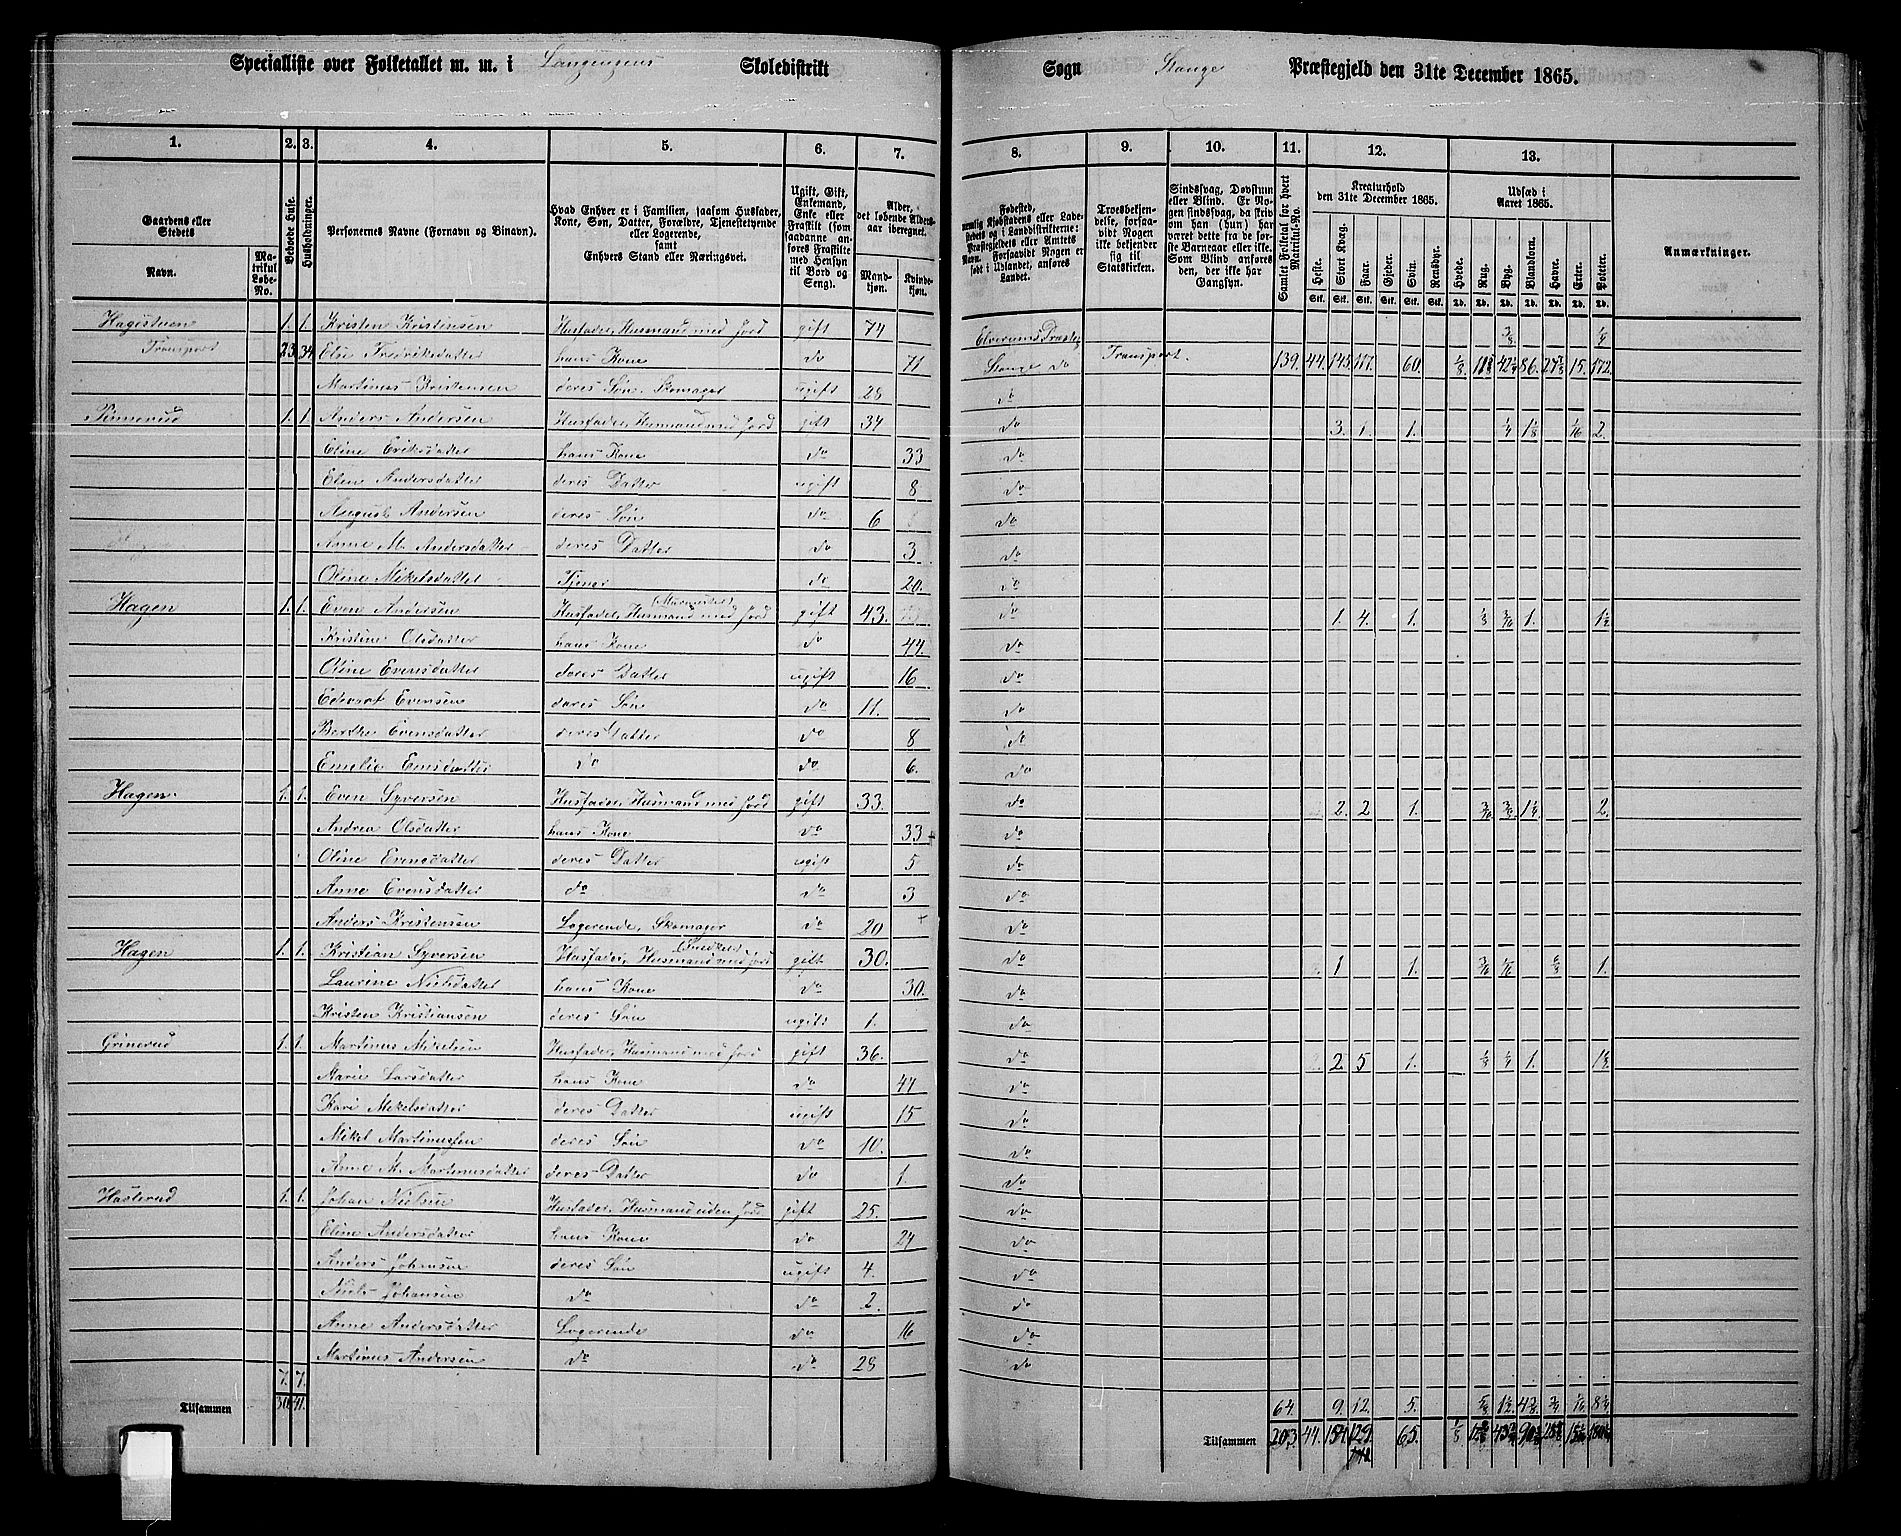 Specialliste over Folketallet m. m. i Langengens Skoledistrikt Sogn Stange Præstegjeld den 31te December 1865.
1. 2. 3. 4. 5. 6. 7. 8. 9. 10. 11. 12. 13.
Gaardens eller Stedets
Navn.
Matrikul Løbe-No.
Beboede Huse.
Husholdninger.
Personernes Navne (Fornavn og Binavn).
Hvad Enhver er i Familien, saasom Husfader, Kone, Søn, Datter, Forældre, Tjenestetyende eller Logerende, samt Enhvers Stand eller Næringsvei.
Ugift, Gift, Enkemand, Enke eller Fraskilt (som saadanne anføres Fraskilte med Hensyn til Bord og Seng).
Alder, det løbende Aldersaar iberegnet.
Mandkjøn. Kvindekjøn.
Fødested, nemlig Kjøbstadens eller Ladestedets og i Landdistrikterne: Præstegjeldets eller Amtets Navn. Forsaavidt Nogen er født i Udlandet, anføres Landet.
Troesbekjendelse, forsaavidt Nogen ikke bekjender sig til Statskirken.
Sindssvag, Døvstum eller Blind. Er Nogen sindssvag, da skrives om han (hun) har været dette fra de første Barneaar eller ikke. Som Blind anføres den, der ikke har Gangsyn.
Samlet Folketal for hvert Matrikul-No.
Kreaturhold den 31te December 1865.
Heste. Stort Kvæg. Faar. Gjeder. Svin. Rensdyr.
Stk. Stk. Stk. Stk. Stk. Stk.
Udsæd i Aaret 1865.
Hvede. Rug. Byg. Blandkorn. Havre. Erter. Poteter.
Td. Td. Td. Td. Td. Td. Td.
Anmærkninger.
Hagestuen 1. 1. Kristen Kristensen Husfader, Husmand med Jord gift 74 Elverums Præstg.
Transport 23 34 Elie Fredriksdatter hans Kone do 71 Stange do Transport. 139. 44. 145. 117. 60.
Martinus Kristensen deres Søn. Skomager ugift 28 do
Pinnerud 1. 1. Anders Andersen Husfader, Husmand med Jord gift 34 do 3. 1. 1. 1/4 1 1/8 1/16 2.
Eline Eriksdatter hans Kone do 33 do
Eline Andersdatter deres Datter ugift 8 do
August Andersen deres Søn do 6 do
Anne M. Andersdatter deres Datter do 3 do
Oline Mikelsdatter Tjener do 20. do
Hagen 1. 1. Even Andersen Husfader, Husmand med Jord gift 43. do 1. 4. 1. 1. 1 1/2
Kristine Olsdatter hans Kone do 44. do
Oline Evensdatter deres Datter ugift 16 do
Edvart Evensen deres Søn do 11. do
Berthe Evensdatter deres Datter do 8 do
Emelie Evensdatter do do. 6. do
Hagen. 1. 1. Even Syversen Husfader, Husmand med Jord gift 33. do 2. 2. 1. 1 1/4 2.
Andrea Olsdatter hans Kone do 33 do
Oline Evensdatter deres Datter ugift 5 do
Anne Evensdatter do do 3 do
Anders Kristensen Logerende, Skomager do 20 do
Hagen 1. 1. Kristian Syversen Husfader, Husmand med Jord (Snedker) gift 30. do 1. 1. 1.
Laurine Nielsdatter hans Kone do 30. do
Kristen Kristiansen deres Søn ugift 1. do
Grinerud 1. 1. Martinus Mikelsen Husfader, Husmand med Jord gift 36. do 2. 5 1. 1.
Marie Larsdatter hans Kone do 47 do
Kari Mikelsdatter deres Datter ugift 15 do
Mikel Martinussen deres Søn do 10. do
Anne M. Martinusdatter deres Datter do 1. do
Hasterud 1. 1. Johan Nielsen Husfader, Husmand uden Jord gift 25. do
Eline Andersdatter hans Kone do 24 do
Anders Johansen deres Søn ugift 4. do
Niels Johansen do do 2. do
Anne Andersdatter Logerende do 16 do
Martinus Andersen do do 28 do
7. 7.
Tilsammen 30. 41. 64. 9. 12. 5.
Tilsammen 203. 44. 154. 129. 65.